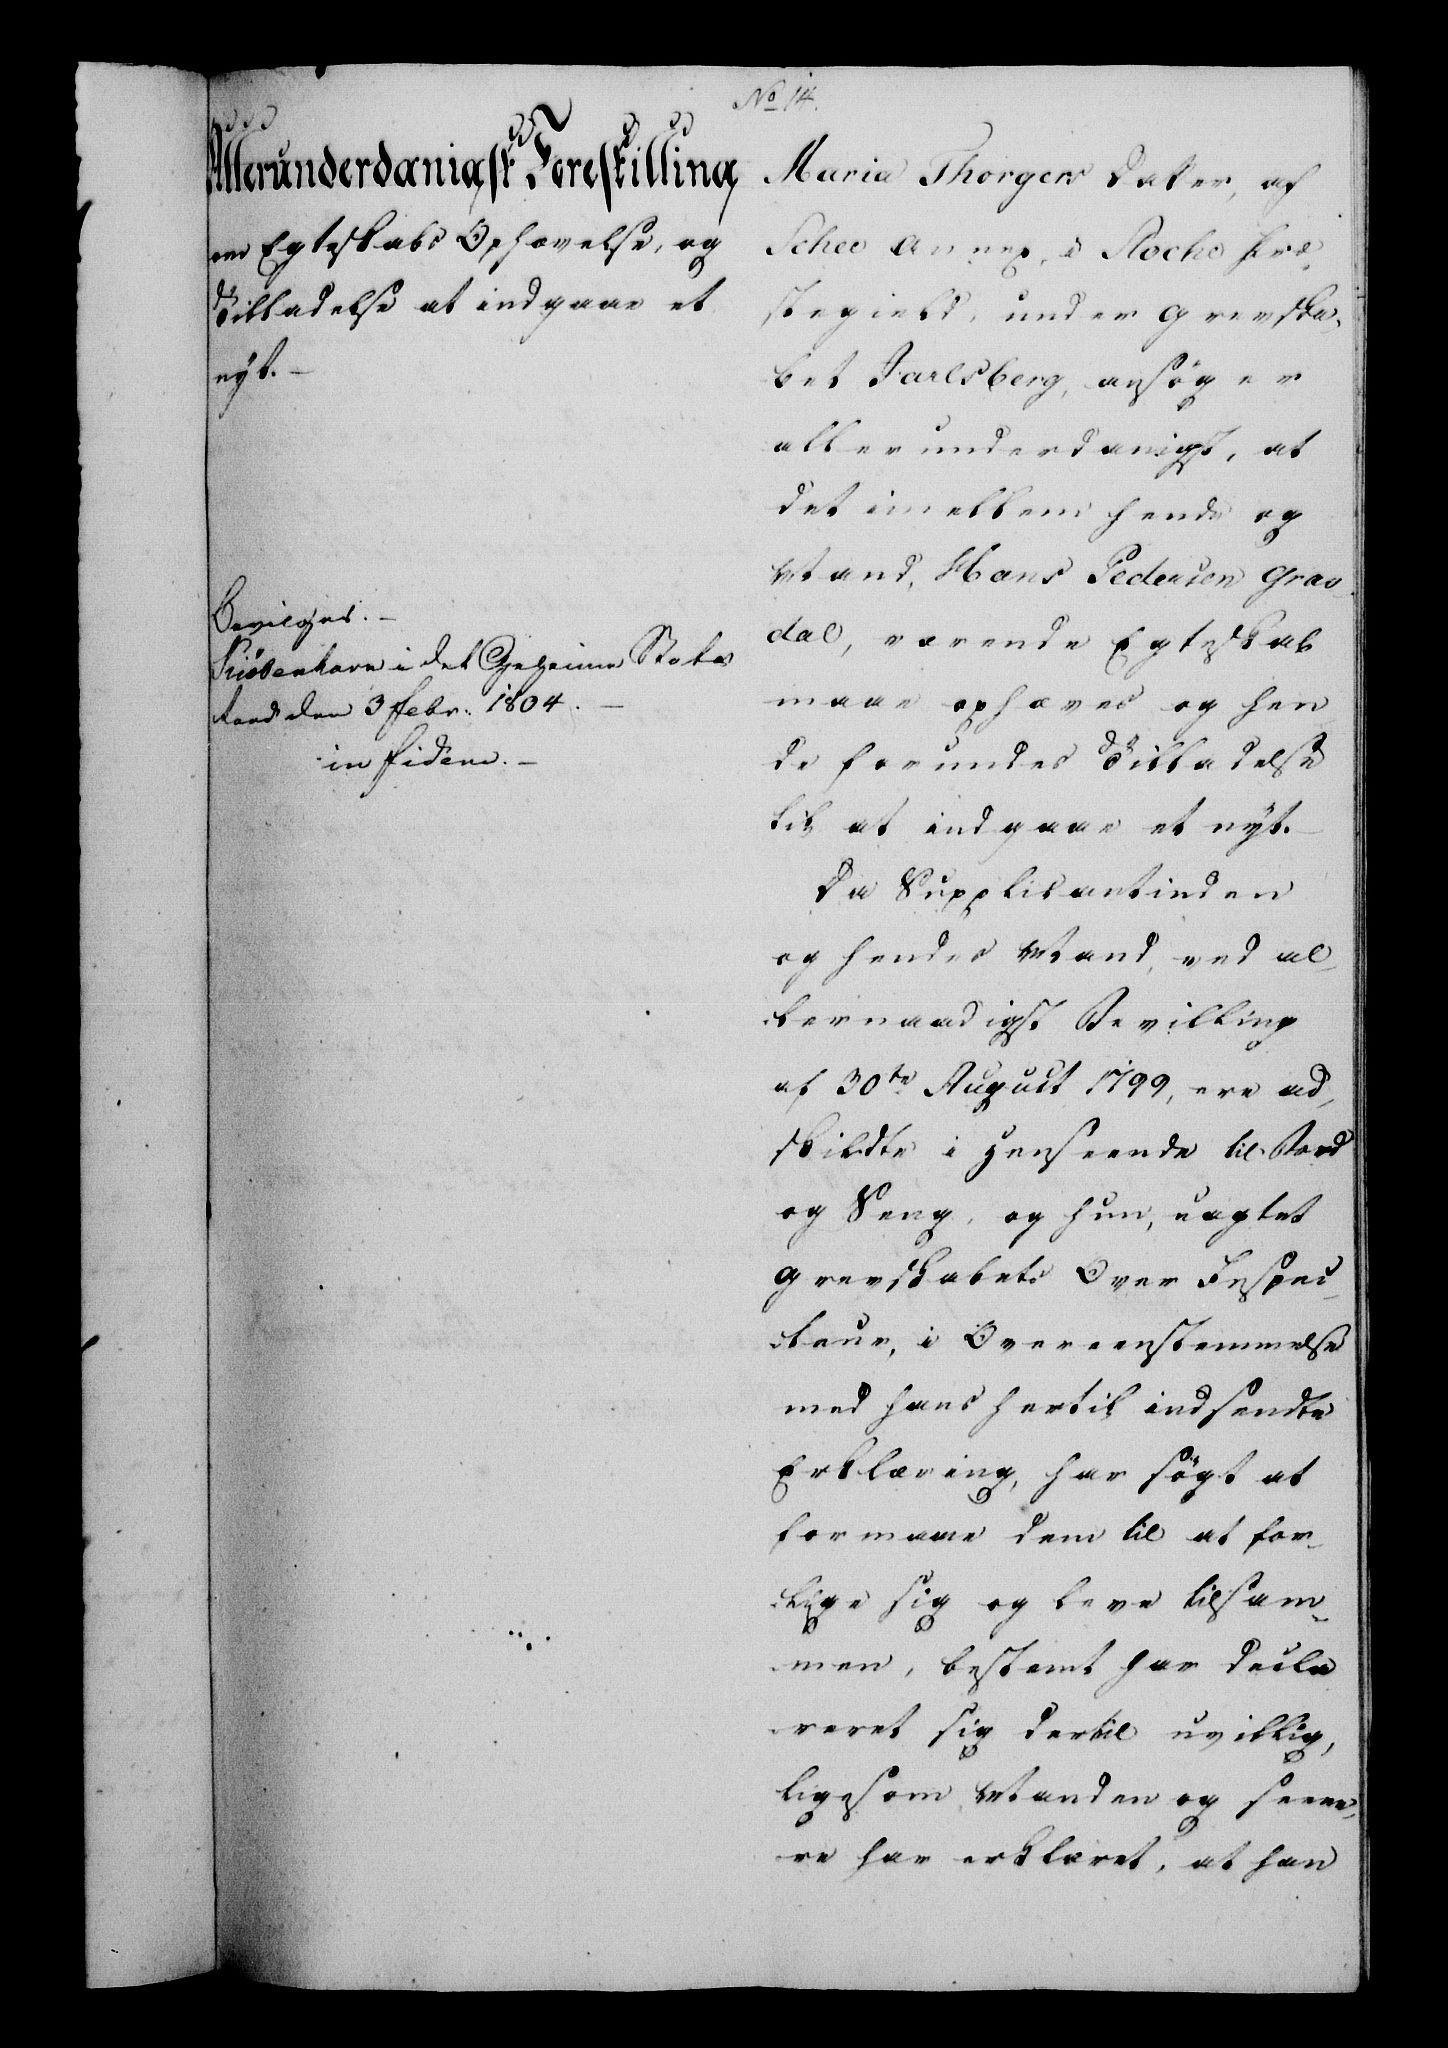 No 14.
Allerunderdanigst Forestilling
om Egteskabs Ophævelse, og
Tilladelse at indgaae et
nyt. —
Bevilges. —
Kiöbenhavn i det Geheime Stats
Raad den 3 Febr. 1804. —
in fidem. —
Maria Thorgers Datter, af
Schee Annex, i Roche Præ-
stegield, under Grevska-
bet Jarlsberg, ansöger
allerunderdanigst, at
det imellem hende og
Mand, Hans Pedersen Grav-
dal, værende Egteskab
maae ophæves og hen
de forundes Tilladelse
til at indgaae et nyt. —
Da Supplicantinden
og hendes Mand, ved al-
lernaadigst Bevilling
af 30te August 1799, ere ad-
skildte i Henseende til Bord
og Seng, og hun, uagtet
Grevskabets Over Inspec-
teur, i Overeenstemmelse
med hans hertil indsendte
Erklæring, har sögt at
formaae dem til at for-
lige sig og leve tilsam-
men, bestemt har decla
reret sig dertil uvillig,
ligesom Manden og seene-
re har erklæret, at han